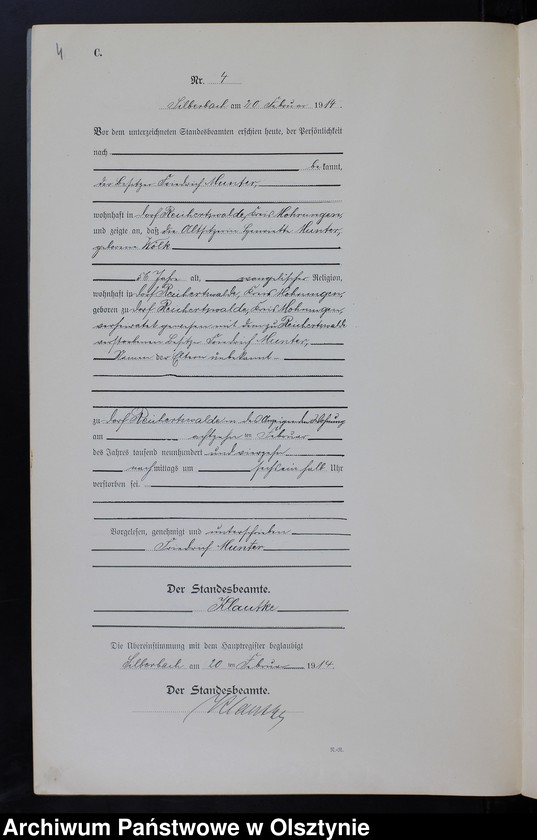 4
C.
Nr. 4
Silberbach am 20 Februar 1914.
Vor dem unterzeichneten Standesbeamten erschien heute, der Persönlichkeit
nach
be kannt,
der Besitzer Friedrich Munter,
wohnhaft in Dorf Reichertswalde, Kreis Mohrungen,
und zeigte an, daß die Altsitzerin Munter,
geborene Wölk
Jahre alt, evangelischer Religion,
wohnhaft in Dorf Reichertswalde, Kreis Mohrungen,
geboren zu Dorf Reichertswalde, Kreis Mohrungen,
verheiratet gewesen mit dem zu Reichertswalde
verstorbenen Besitzer Friedrich Munter,
Namen der Eltern unbekannt
zu Dorf Reichertswalde in des Anzeigenden Wohnung
am achtzehn ten Februar
des Jahres tausend neunhundert und vierzehn
nach mittags um sechs ein halb Uhr
verstorben sei.
Vorgelesen, genehmigt und unterschrieben
Friedrich Munter
Der Standesbeamte.
Klautke
Die Übereinstimmung mit dem Hauptregister beglaubigt
Silberbach am 20 ten Februar 1914.
Der Standesbeamte.
Klautke
Archiwum Państwowe w Olsztynie